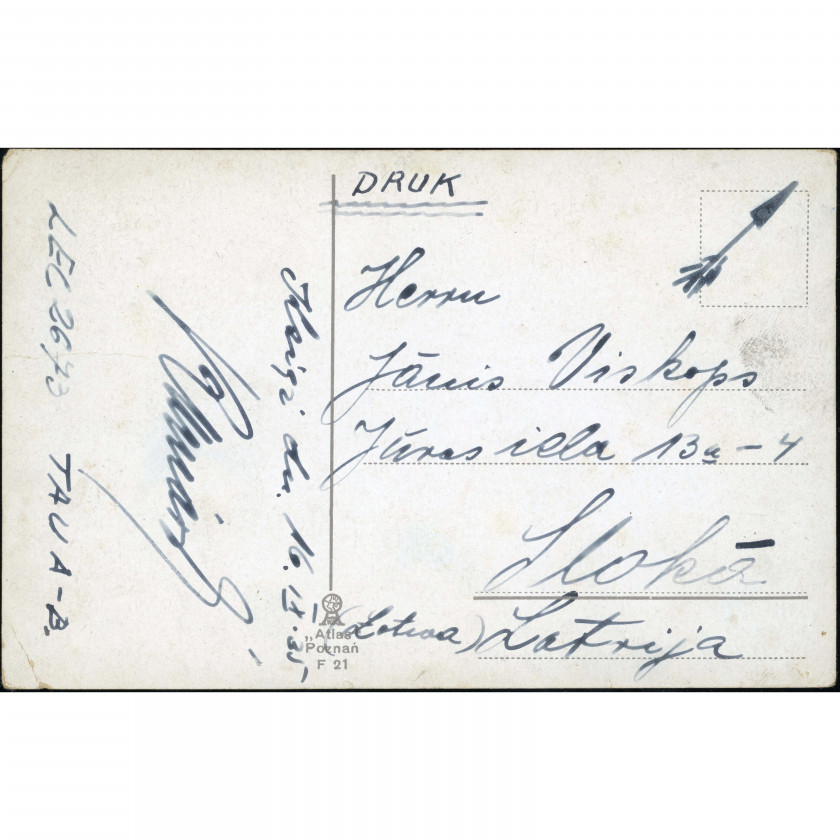 DRUK
Herrn
Jānis Viskops
Jūras iela 13a-4
Slokā
(Łotwa) Latvija
dn. 16.IX.35
LEC 2673 TAU A-B.
„Atlas"
Poznań
F 21